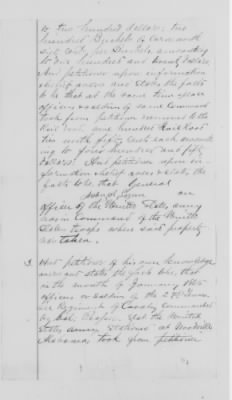 to two hundred dollars; two
hundred Bushels of Corn worth
sixty cents per Bushel, amounting
to one hundred and twenty dollars.
And petitioner upon information
& belief avers and states the facts
to be that at the same time & place
officers & soldiers of same Command
took from petitioner
one hundred Rail Road
ties worth fifty cents each amount-
ing to hundred and fifty
dollars. And petitioner upon in-
formation & belief avers & states the
facts to be, that General
an
officer of the United States army
was in Command of the United
States troops where said property
was taken.
3. And petitioner of his own knowledge
avers and states the facts to be, that
in the month of January 1865
officers or soldiers of the
Regiment of Cavalry Commanded
by Col. of the United
States army stationed at Woodville
Alabama took from petitioner